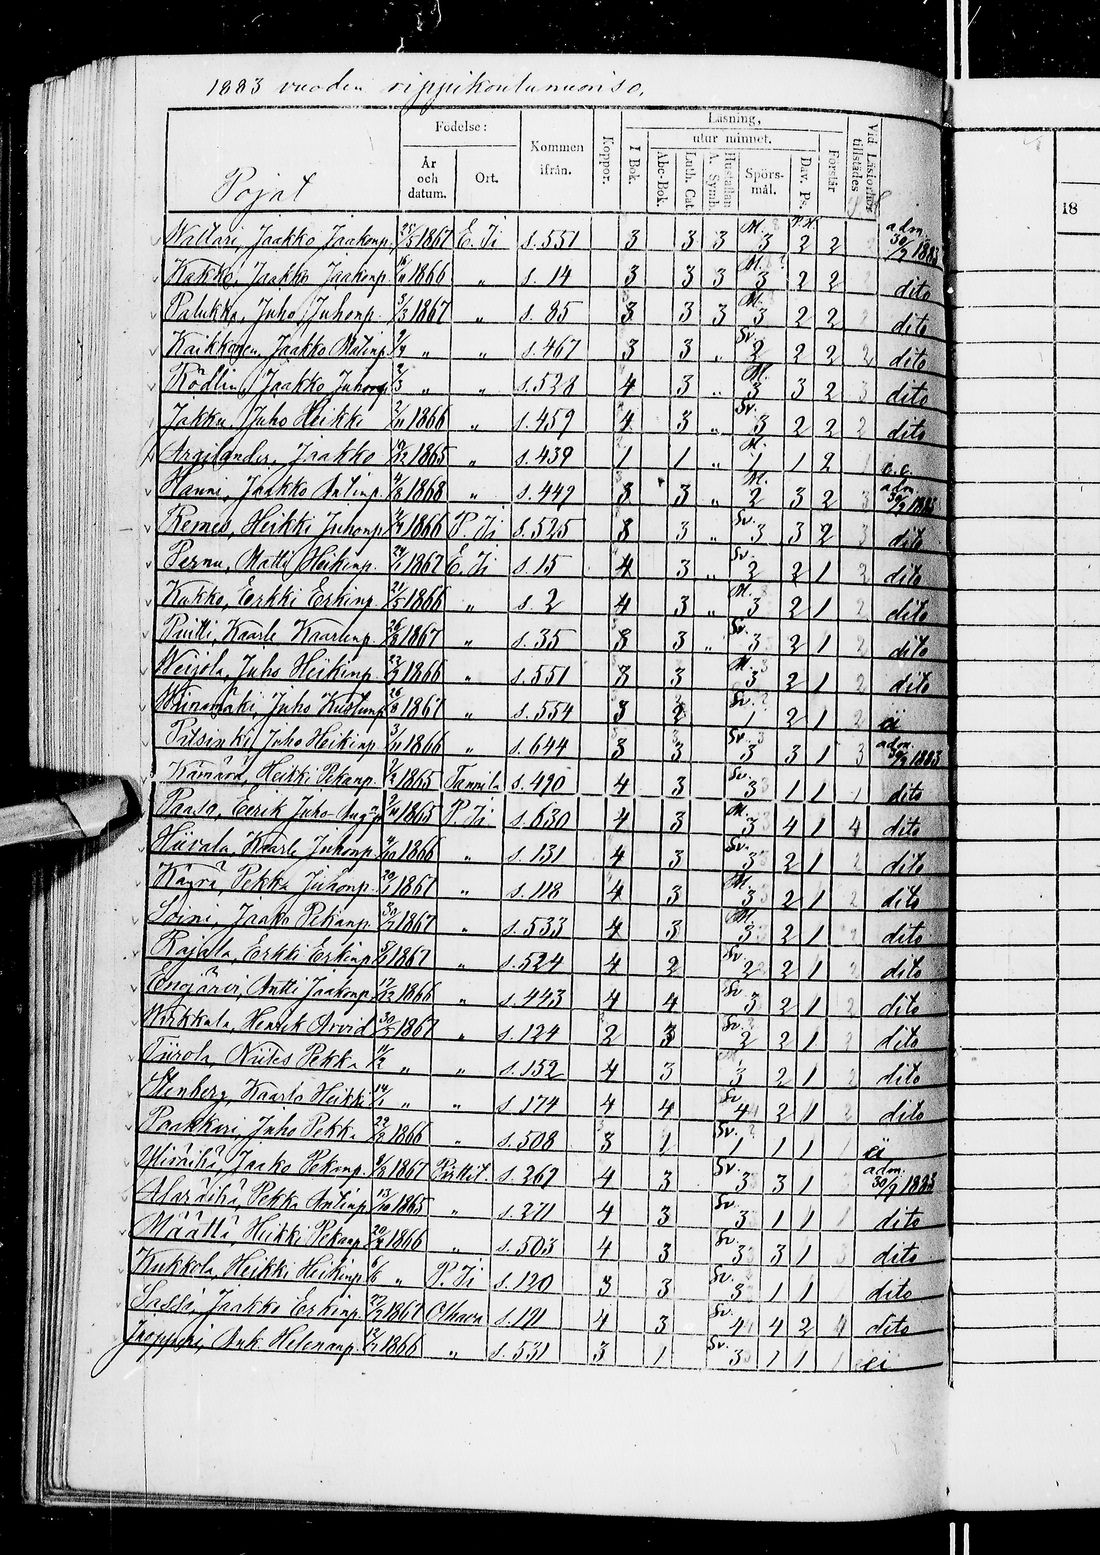 1883 vuoden rippikoulunuoriso.
Pojat
Födelse:
År och datum.
Ort.
Kommen ifrån.
Koppor.
Läsning,
I Bok.
utur minnet.
Abc-Bok.
Luth. Cat.
Hustaflan A. Symb.
Spörs-mål.
Dav. Ps.
Förstår
Vid Läsförhör tillstädes
18
Wattari, Jaakko Jaakonp. 1867 E. Ii s. 551 3 3 3 M. 3 2 2 adm. 30/9 1883
Kakko, Jaakko Jaakonp. 1866 " s. 14 3 3 3 M. 3 2 2 dito
Palukka, Juho Juhonp. 3/3 1867 " s. 85 3 3 3 M. 3 2 2 dito
Kaikkonen Jaakko Matinp. " " s. 467 3 3 " Sv. 2 2 2 2 dito
Rödlin, Jaakko Juhonp. " " s. 528 4 3 " M. 3 3 2 3 dito
Jakku, Juho Heikki 1866 " s. 459 4 3 " Sv. 3 2 2 2 dito
Argilander, Jaakko 1865 " s. 439 1 1 " M. 1 1 2 1
Hanni, Jaakko Antinp. 1868 " s. 449 3 3 " M. 2 3 2 3 adm. 30/9 1883
Remes, Heikki Juhonp. 1866 P. Ii s. 525 3 3 " Sv. 3 3 2 3 dito
Pernu, Matti Heikinp. 1867 E. Ii s. 15 4 3 " Sv. 2 2 1 2 dito
Kakko, Eerkki Erkinp. 1866 " s. 2 4 3 " M. 3 2 1 2 dito
Puitti, Kaarle Kaarlenp. 1867 " s. 35 3 3 " Sv. 3 2 1 2 dito
Weijola, Juho Heikinp. 1866 " s. 551 3 3 M. 3 2 1 2 dito
Wiinamäki, Juho Kustunp. 1867 " s. 554 3 2 Sv. 1 2 1 2 ei
Pitsinki, Juho Heikinp. 1866 " s. 644 3 3 Sv. 3 3 1 3 adm. 30/9 1883
Kämärä, Heikki Pekanp. 1865 Tannila s. 490 4 3 Sv. 3 1 1 1 dito
Paaso, Eerik Juho Aug. 1865 P. Ii s. 630 4 3 M. 3 4 1 4 dito
Hiivala, Kaarle Juhonp. 1866 " s. 131 4 3 Sv. 3 2 1 2 dito
Käyrä, Pekka Juhonp. 1867 " s. 118 4 3 M. 3 2 1 2 dito
Soini, Jaako Pekanp. 1867 " s. 533 4 3 M. 3 2 1 2 dito
Rajala, Erkki Erkinp. 1867 " s. 524 4 2 Sv. 2 2 1 2 dito
Antti Jaakonp. 1866 " s. 443 4 4 Sv. 3 2 1 2 dito
Wirkkula, Henrik Arvid 1867 " s. 124 2 3 Sv. 2 2 1 2 dito
Tiirola, Niiles Pekka " " s. 152 4 3 3 2 1 2 dito
Stenberg, Kaarlo Heikki 14/1 " " s. 174 4 4 Sv. 4 2 1 2 dito
Paakkari, Juho Pekka 1866 " s. 508 3 1 Sv. 1 1 1 1 ei
Jaako Pekanp. 1867 s. 267 4 3 Sv. 3 3 1 adm. 30/9 1883
Alaräihä, Pekka Antinp. 1865 " s. 271 4 3 Sv. 3 1 1 1 dito
Määttä, Heikki Pekanp. 1866 " s. 503 4 3 Sv. 3 3 1 3 dito
Kukkola, Heikki Heikinp. 6/6 " P. Ii s. 120 3 3 Sv. 3 1 1 1 dito
Sassi, Jaakko Erkinp. 1867 Olhava s. 191 4 3 Sv. 4 4 2 4 dito
Joppuri, Ant. Helenanp. 1866 " s. 531 3 1 Sv. 3 1 1 1 ei